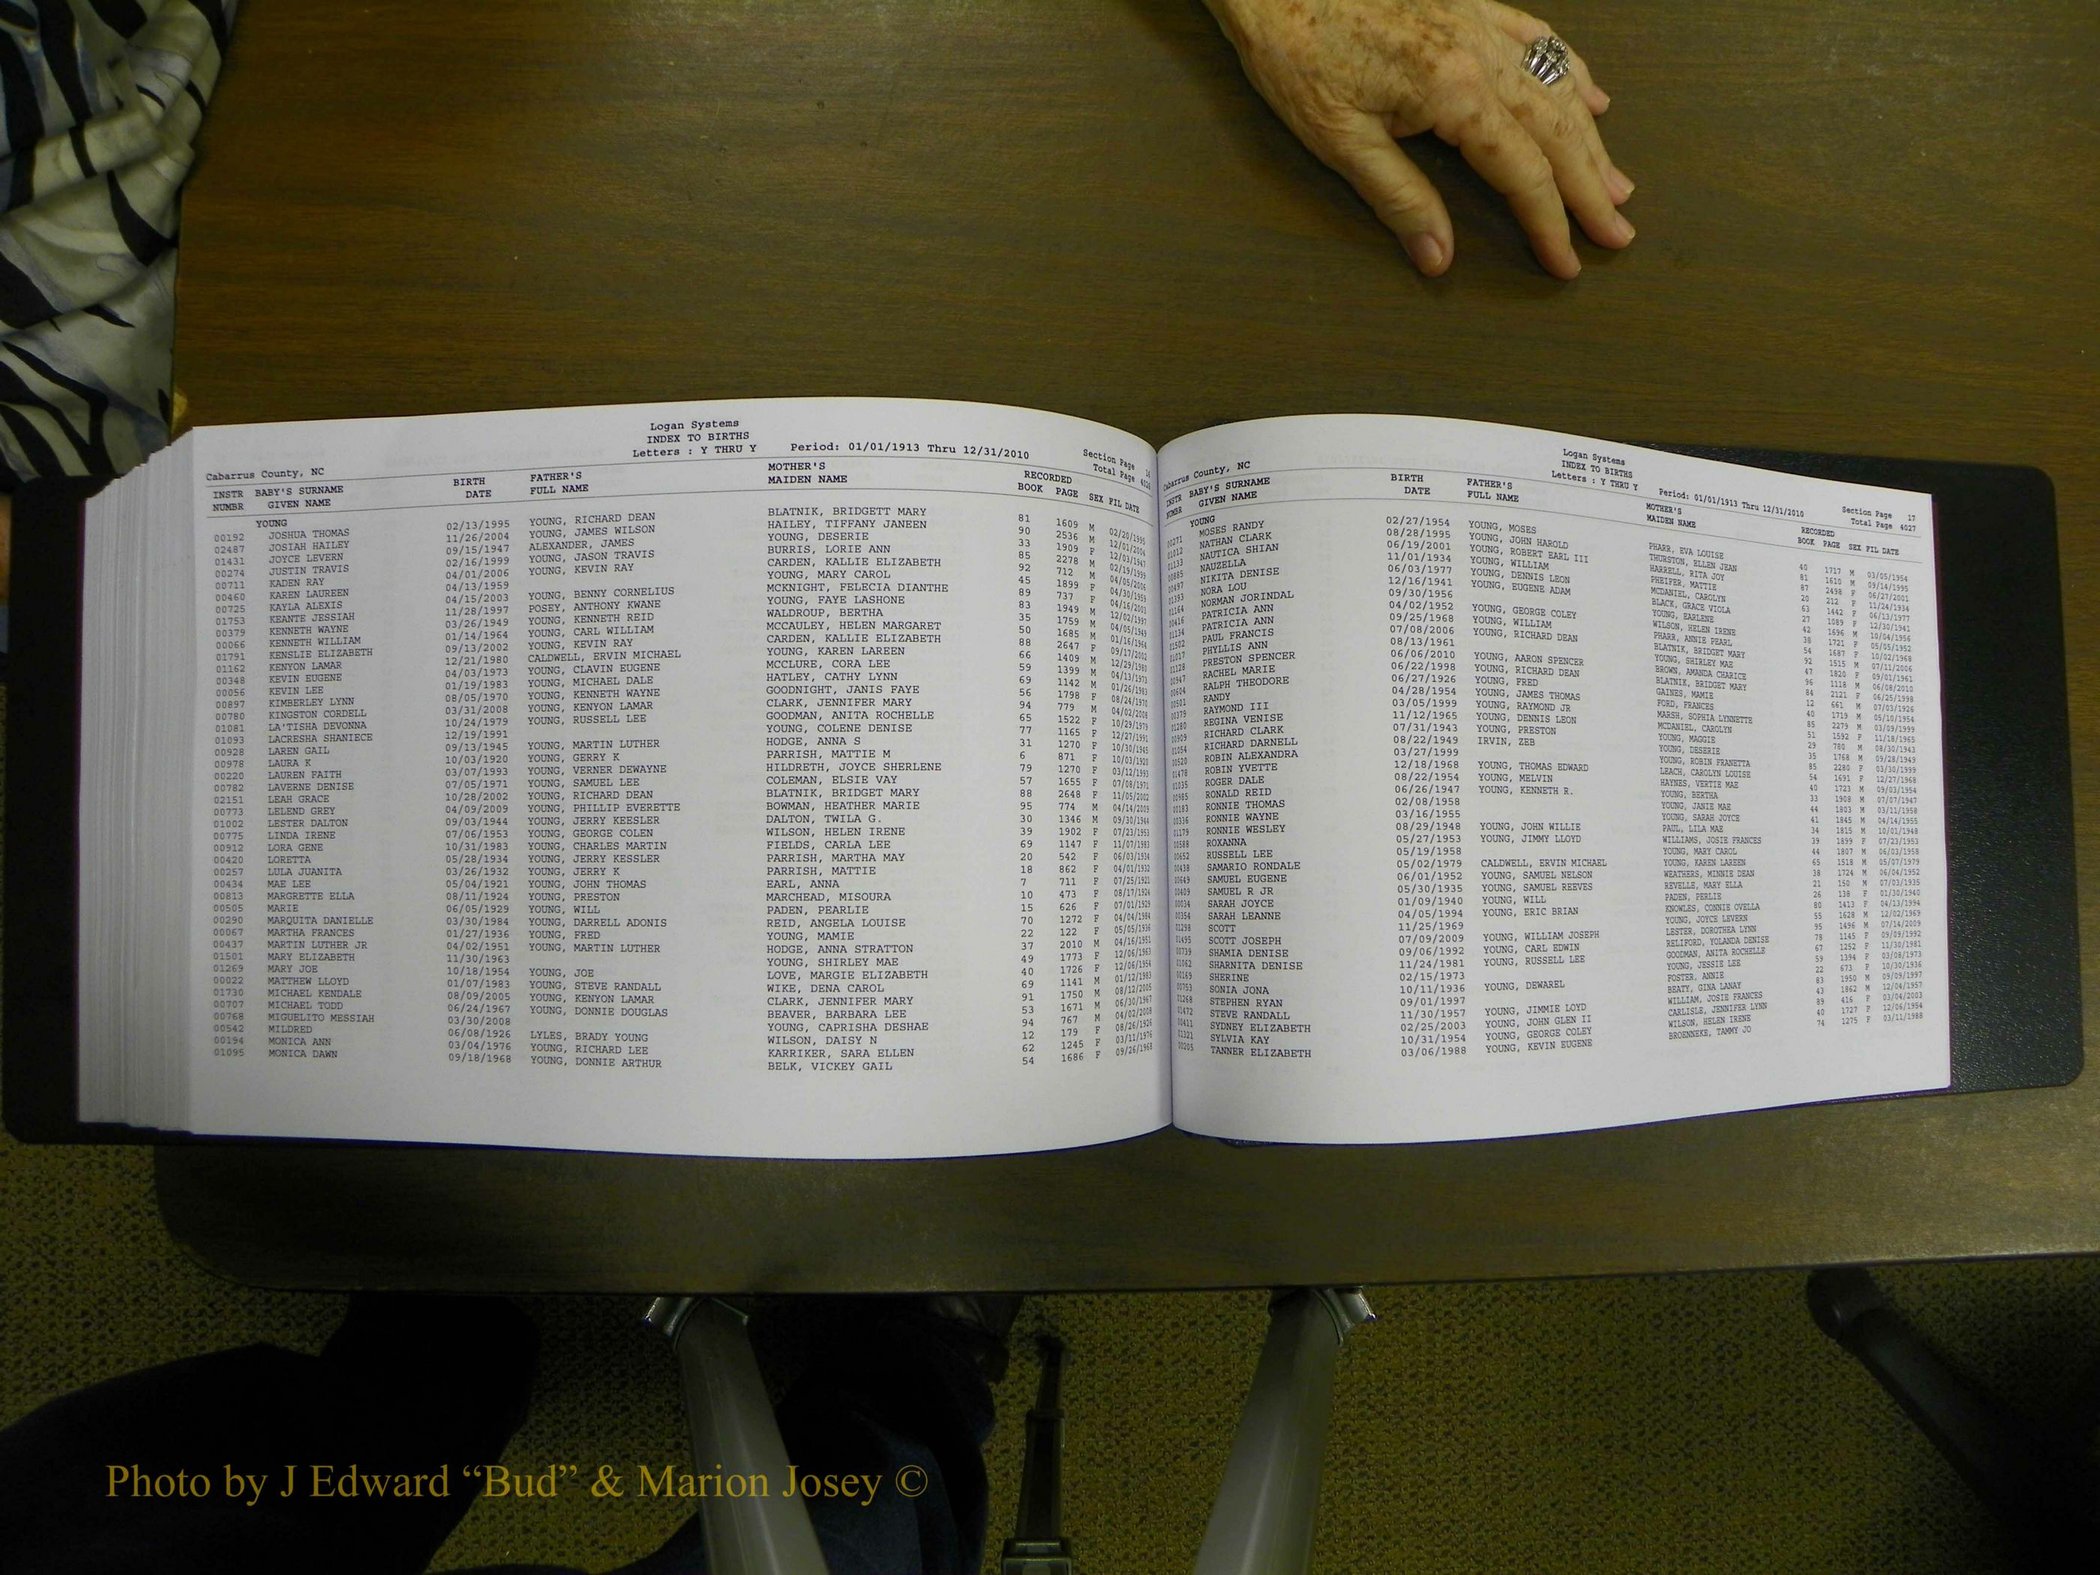 Logan Systems
INDEX TO BIRTHS
Letters : Y THRU Y Period: 01/01/1913 Thru 12/31/2010
Section Page 16
Total Page 4026
Cabarrus County, NC
INSTR BABY'S SURNAME BIRTH FATHER'S MOTHER'S RECORDED
NUMBR GIVEN NAME DATE FULL NAME MAIDEN NAME BOOK PAGE SEX FIL DATE
YOUNG
00192 JOSHUA THOMAS 02/13/1995 YOUNG, RICHARD DEAN BLATNIK, BRIDGETT MARY 81 1609 M 02/20/1995
02487 JOSIAH HAILEY 11/26/2004 YOUNG, JAMES WILSON HAILEY, TIFFANY JANEEN 90 2536 M 12/01/2004
01431 JOYCE LEVERN 09/15/1947 ALEXANDER, JAMES YOUNG, DESERIE 33 1909 F 12/03/1947
00274 JUSTIN TRAVIS 02/16/1999 YOUNG, JASON TRAVIS BURRIS, LORIE ANN 85 2278 M 02/19/1999
00711 KADEN RAY 04/01/2006 YOUNG, KEVIN RAY CARDEN, KALLIE ELIZABETH 92 712 M 04/05/2006
00460 KAREN LAUREEN 04/13/1959 YOUNG, MARY CAROL 45 1899 F 04/30/1959
00725 KAYLA ALEXIS 04/15/2003 YOUNG, BENNY CORNELIUS MCKNIGHT, FELECIA DIANTHE 89 737 F 04/16/2003
01753 KEANTE JESSIAH 11/28/1997 POSEY, ANTHONY KWANE YOUNG, FAYE LASHONE 83 1949 M 12/02/1997
00379 KENNETH WAYNE 03/26/1949 YOUNG, KENNETH REID WALDROUP, BERTHA 35 1759 M 04/05/1949
00066 KENNETH WILLIAM 01/14/1964 YOUNG, CARL WILLIAM MCCAULEY, HELEN MARGARET 50 1685 M 01/16/1964
01791 KENSLIE ELIZABETH 09/13/2002 YOUNG, KEVIN RAY CARDEN, KALLIE ELIZABETH 88 2647 F 09/17/2002
01162 KENYON LAMAR 12/21/1980 CALDWELL, ERVIN MICHAEL YOUNG, KAREN LAREEN 66 1409 M 12/29/1980
00348 KEVIN EUGENE 04/03/1973 YOUNG, CLAVIN EUGENE MCCLURE, CORA LEE 59 1399 M 04/13/1973
00056 KEVIN LEE 01/19/1983 YOUNG, MICHAEL DALE HATLEY, CATHY LYNN 69 1142 M 01/26/1983
00897 KIMBERLEY LYNN 08/05/1970 YOUNG, KENNETH WAYNE GOODNIGHT, JANIS FAYE 56 1798 F 08/24/1970
00780 KINGSTON CORDELL 03/31/2008 YOUNG, KENYON LAMAR CLARK, JENNIFER MARY 94 779 M 04/02/2008
01081 LA'TISHA DEVONNA 10/24/1979 YOUNG, RUSSELL LEE GOODMAN, ANITA ROCHELLE 65 1522 F 10/29/1979
01093 LACRESHA SHANIECE 12/19/1991 YOUNG, COLENE DENISE 77 1165 F 12/27/1991
00928 LAREN GAIL 09/13/1945 YOUNG, MARTIN LUTHER HODGE, ANNA S 31 1270 F 10/30/1945
00978 LAURA K 10/03/1920 YOUNG, GERRY K PARRISH, MATTIE M 6 871 F 10/03/1920
00220 LAUREN FAITH 03/07/1993 YOUNG, VERNER DEWAYNE HILDRETH, JOYCE SHERLENE 79 1270 F 03/12/1993
00782 LAVERNE DENISE 07/05/1971 YOUNG, SAMUEL LEE COLEMAN, ELSIE VAY 57 1655 F 07/08/1971
02151 LEAH GRACE 10/28/2002 YOUNG, RICHARD DEAN BLATNIK, BRIDGET MARY 88 2648 F 11/05/2002
00773 LELEND GREY 04/09/2009 YOUNG, PHILLIP EVERETTE BOWMAN, HEATHER MARIE 95 774 M 04/14/2009
01002 LESTER DALTON 09/03/1944 YOUNG, JERRY KEESLER DALTON, TWILA G. 30 1346 M 09/30/1944
00775 LINDA IRENE 07/06/1953 YOUNG, GEORGE COLEN WILSON, HELEN IRENE 39 1902 F 07/23/1953
00912 LORA GENE 10/31/1983 YOUNG, CHARLES MARTIN FIELDS, CARLA LEE 69 1147 F 11/07/1983
00420 LORETTA 05/28/1934 YOUNG, JERRY KESSLER PARRISH, MARTHA MAY 20 542 F 06/03/1934
00257 LULA JUANITA 03/26/1932 YOUNG, JERRY K PARRISH, MATTIE 18 862 F 04/01/1932
00434 MAE LEE 05/04/1921 YOUNG, JOHN THOMAS EARL, ANNA 7 711 F 07/25/1921
00813 MARGRETTE ELLA 08/11/1924 YOUNG, PRESTON MARCHEAD, MISOURA 10 473 F 08/17/1924
00505 MARIE 06/05/1929 YOUNG, WILL PADEN, PEARLIE 15 626 F 07/01/1929
00290 MARQUITA DANIELLE 03/30/1984 YOUNG, DARRELL ADONIS REID, ANGELA LOUISE 70 1272 F 04/04/1984
00067 MARTHA FRANCES 01/27/1936 YOUNG, FRED YOUNG, MAMIE 22 122 F 05/05/1936
00437 MARTIN LUTHER JR 04/02/1951 YOUNG, MARTIN LUTHER HODGE, ANNA STRATTON 37 2010 M 04/16/1951
01501 MARY ELIZABETH 11/30/1963 YOUNG, SHIRLEY MAE 49 1773 F 12/06/1963
01269 MARY JOE 10/18/1954 YOUNG, JOE LOVE, MARGIE ELIZABETH 40 1726 F 12/06/1954
00022 MATTHEW LLOYD 01/07/1983 YOUNG, STEVE RANDALL WIKE, DENA CAROL 69 1141 M 01/12/1983
01730 MICHAEL KENDALE 08/09/2005 YOUNG, KENYON LAMAR CLARK, JENNIFER MARY 91 1750 M 08/12/2005
00707 MICHAEL TODD 06/24/1967 YOUNG, DONNIE DOUGLAS BEAVER, BARBARA LEE 53 1671 M 06/30/1967
00768 MIGUELITO MESSIAH 03/30/2008 YOUNG, CAPRISHA DESHAE 94 767 M 04/02/2008
00542 MILDRED 06/08/1926 LYLES, BRADY YOUNG WILSON, DAISY N 12 179 F 08/26/1926
00194 MONICA ANN 03/04/1976 YOUNG, RICHARD LEE KARRIKER, SARA ELLEN 62 1245 F 03/11/1976
01095 MONICA DAWN 09/18/1968 YOUNG, DONNIE ARTHUR BELK, VICKEY GAIL 54 1686 F 09/26/1968
Logan Systems
INDEX TO BIRTHS
Letters : Y THRU Y Period: 01/01/1913 Thru 12/31/2010
Section Page 17
Total Page 4027
Cabarrus County, NC
INSTR BABY'S SURNAME BIRTH FATHER'S MOTHER'S RECORDED
NUMBR GIVEN NAME DATE FULL NAME MAIDEN NAME BOOK PAGE SEX FIL DATE
YOUNG
00271 MOSES RANDY 02/27/1954 YOUNG, MOSES PHARR, EVA LOUISE 40 1717 M 03/05/1954
01012 NATHAN CLARK 08/28/1995 YOUNG, JOHN HAROLD THURSTON, ELLEN JEAN 81 1610 M 09/14/1995
01133 NAUTICA SHIAN 06/19/2001 YOUNG, ROBERT EARL III HARRELL, RITA JOY 87 2498 F 06/27/2001
00885 NAUZELLA 11/01/1934 YOUNG, WILLIAM PHEIFER, MATTIE 20 212 F 11/24/1934
00497 NIKITA DENISE 06/03/1977 YOUNG, DENNIS LEON MCDANIEL, CAROLYN 63 1442 F 06/13/1977
01393 NORA LOU 12/16/1941 YOUNG, EUGENE ADAM BLACK, GRACE VIOLA 27 1089 F 12/30/1941
01164 NORMAN JORINDAL 09/30/1956 YOUNG, EARLENE 42 1696 M 10/04/1956
00416 PATRICIA ANN 04/02/1952 YOUNG, GEORGE COLEY WILSON, HELEN IRENE 38 1721 F 05/05/1952
01134 PATRICIA ANN 09/25/1968 YOUNG, WILLIAM PHARR, ANNIE PEARL 54 1687 F 10/02/1968
01502 PAUL FRANCIS 07/08/2006 YOUNG, RICHARD DEAN BLATNIK, BRIDGET MARY 92 1515 M 07/11/2006
01017 PHYLLIS ANN 08/13/1961 YOUNG, SHIRLEY MAE 47 1820 F 09/01/1961
01128 PRESTON SPENCER 06/06/2010 YOUNG, AARON SPENCER BROWN, AMANDA CHARICE 96 1118 M 06/08/2010
00947 RACHEL MARIE 06/22/1998 YOUNG, RICHARD DEAN BLATNIK, BRIDGET MARY 84 2121 F 06/25/1998
00604 RALPH THEODORE 06/27/1926 YOUNG, FRED GAINES, MAMIE 12 661 M 07/03/1926
00501 RANDY 04/28/1954 YOUNG, JAMES THOMAS FORD, FRANCES 40 1719 M 05/10/1954
00379 RAYMOND III 03/05/1999 YOUNG, RAYMOND JR MARSH, SOPHIA LYNNETTE 85 2279 M 03/09/1999
01280 REGINA VENISE 11/12/1965 YOUNG, DENNIS LEON MCDANIEL, CAROLYN 51 1592 F 11/18/1965
00909 RICHARD CLARK 07/31/1943 YOUNG, PRESTON YOUNG, MAGGIE 29 780 M 08/30/1943
01054 RICHARD DARNELL 08/22/1949 IRVIN, ZEB YOUNG, DESERIE 35 1768 M 09/28/1949
00520 ROBIN ALEXANDRA 03/27/1999 YOUNG, ROBIN FRANETTA 85 2280 F 03/30/1999
01478 ROBIN YVETTE 12/18/1968 YOUNG, THOMAS EDWARD LEACH, CAROLYN LOUISE 54 1691 F 12/27/1968
01035 ROGER DALE 08/22/1954 YOUNG, MELVIN HAYNES, VERTIE MAE 40 1723 M 09/03/1954
00985 RONALD REID 06/26/1947 YOUNG, KENNETH R. YOUNG, BERTHA 33 1908 M 07/07/1947
00183 RONNIE THOMAS 02/08/1958 YOUNG, JANIE MAE 44 1803 M 03/11/1958
00336 RONNIE WAYNE 03/16/1955 YOUNG, SARAH JOYCE 41 1845 M 04/14/1955
01179 RONNIE WESLEY 08/29/1948 YOUNG, JOHN WILLIE PAUL, LILA MAE 34 1815 M 10/01/1948
00588 ROXANNA 05/27/1953 YOUNG, JIMMY LLOYD WILLIAMS, JOSIE FRANCES 39 1899 F 07/23/1953
00652 RUSSELL LEE 05/19/1958 YOUNG, MARY CAROL 44 1807 M 06/03/1958
00438 SAMARIO RONDALE 05/02/1979 CALDWELL, ERVIN MICHAEL YOUNG, KAREN LAREEN 65 1518 M 05/07/1979
00649 SAMUEL EUGENE 06/01/1952 YOUNG, SAMUEL NELSON WEATHERS, MINNIE DEAN 38 1724 M 06/04/1952
00409 SAMUEL R JR 05/30/1935 YOUNG, SAMUEL REEVES REVELLE, MARY ELLA 21 150 M 07/03/1935
00034 SARAH JOYCE 01/09/1940 YOUNG, WILL PADEN, PERLIE 26 138 F 01/30/1940
00354 SARAH LEANNE 04/05/1994 YOUNG, ERIC BRIAN KNOWLES, CONNIE OVELLA 80 1413 F 04/13/1994
01298 SCOTT 11/25/1969 YOUNG, JOYCE LEVERN 55 1628 M 12/02/1969
01495 SCOTT JOSEPH 07/09/2009 YOUNG, WILLIAM JOSEPH LESTER, DOROTHEA LYNN 95 1496 M 07/14/2009
00739 SHAMIA DENISE 09/06/1992 YOUNG, CARL EDWIN RELIFORD, YOLANDA DENISE 78 1145 F 09/09/1992
01062 SHARNITA DENISE 11/24/1981 YOUNG, RUSSELL LEE GOODMAN, ANITA ROCHELLE 67 1252 F 11/30/1981
00169 SHERINE 02/15/1973 YOUNG, JESSIE LEE 59 1394 F 03/08/1973
00753 SONIA JONA 10/11/1936 YOUNG, DEWAREL FOSTER, ANNIE 22 673 F 10/30/1936
01268 STEPHEN RYAN 09/01/1997 BEATY, GINA LANAY 83 1950 M 09/09/1997
01472 STEVE RANDALL 11/30/1957 YOUNG, JIMMIE LOYD WILLIAM, JOSIE FRANCES 43 1862 M 12/04/1957
00411 SYDNEY ELIZABETH 02/25/2003 YOUNG, JOHN GLEN II CARLISLE, JENNIFER LYNN 89 416 F 03/04/2003
01321 SYLVIA KAY 10/31/1954 YOUNG, GEORGE COLEY WILSON, HELEN IRENE 40 1727 F 12/06/1954
00205 TANNER ELIZABETH 03/06/1988 YOUNG, KEVIN EUGENE BROENNEKE, TAMMY JO 74 1275 F 03/11/1988
Photo by J Edward “Bud” & Marion Josey ©